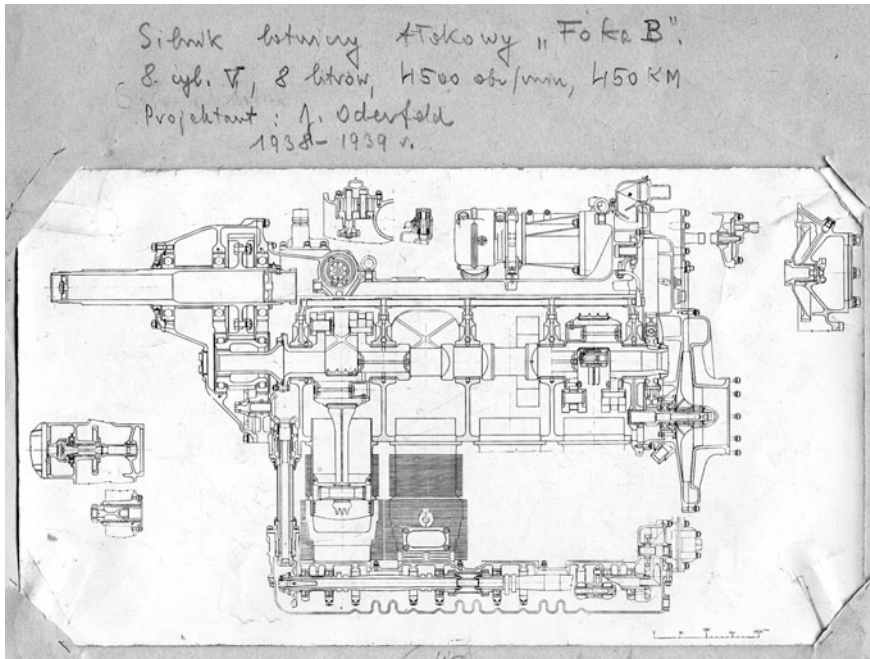 Silnik lotniczy tłokowy „Foka B".
8 cyl. V, 8 litrów, 4500 obr/min, 450 KM
Projektant: J. Oderfeld
1938-1939 r.